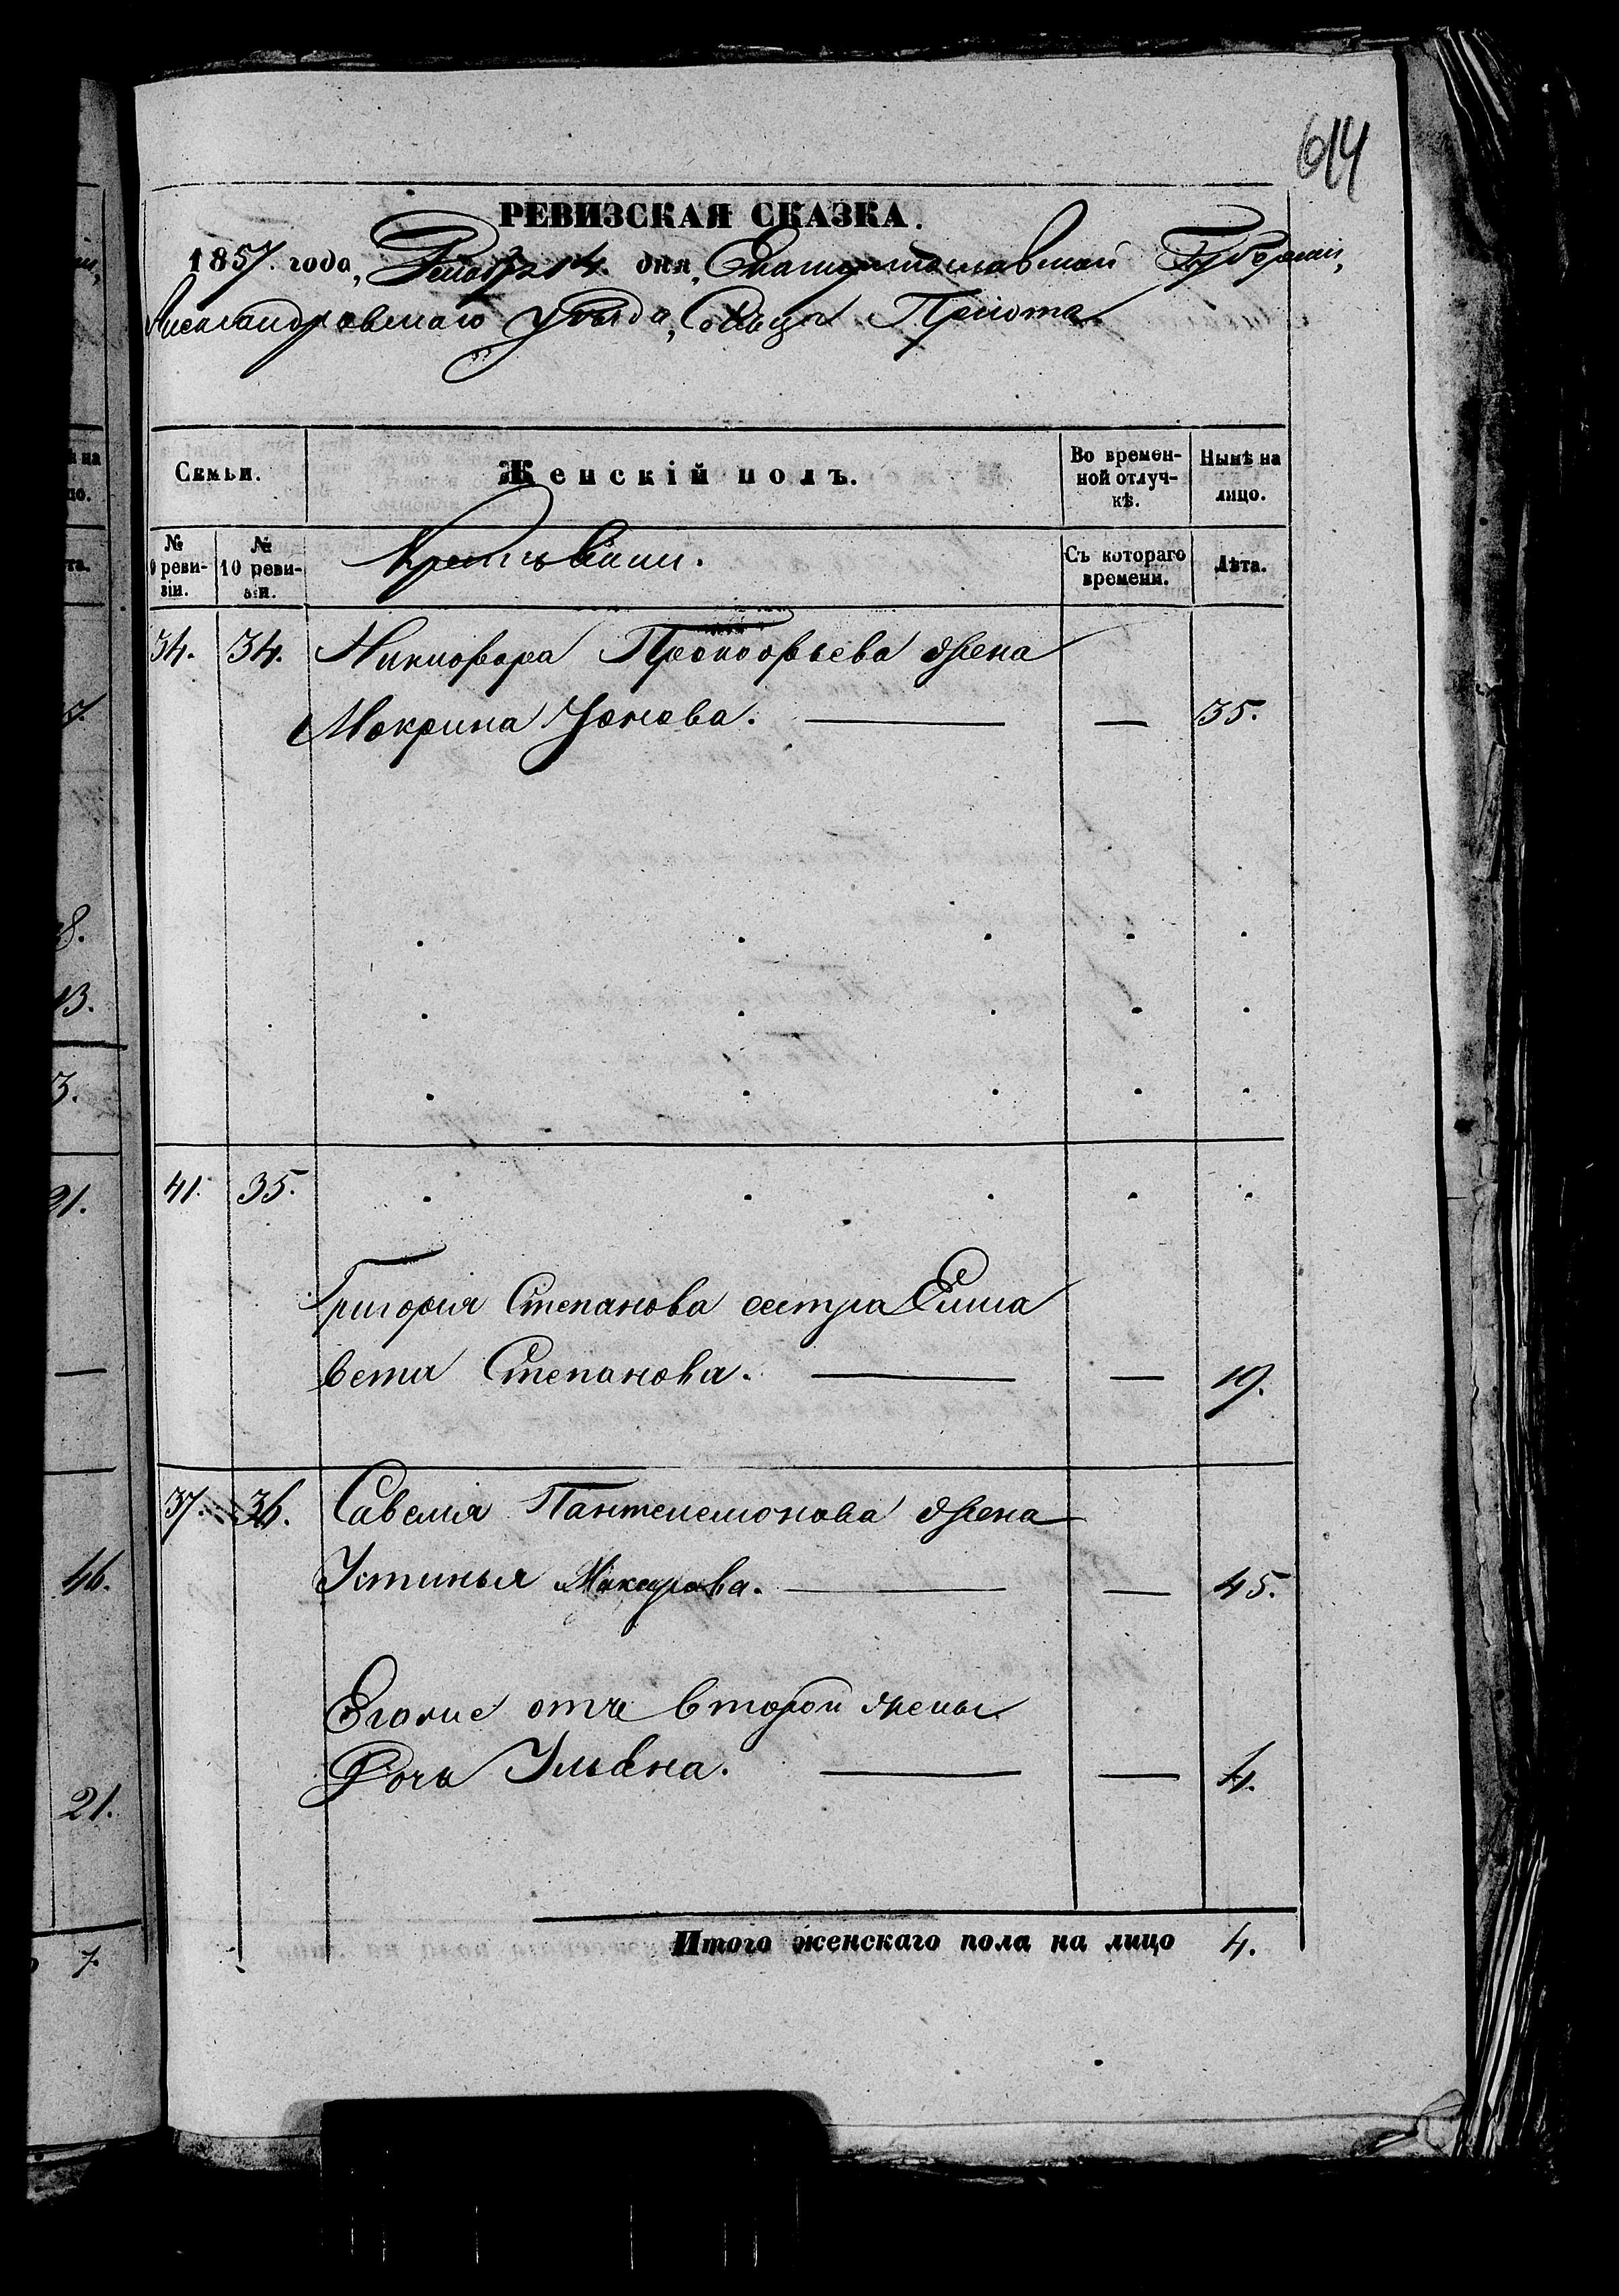 614
РЕВИЗСКАЯ СКАЗКА.
1857. года, Декабря 14. дня, Екатеринославской Губернии,
Александровскаго уѣзда, Сельца Пріюта
Семьи.
Женскій полъ.
Во времен-
ной отлуч-
кѣ.
Нынѣ на
лицо.
№
9 реви-
зіи.
№
10 реви-
зіи.
Крестьяни.
Съ котораго
времени.
Лѣта.
34. 34. Никифора Прокофьева жена
Мокрина Ѳонова. — — 35.
41. 35.
Григорія Степанова сестра Елиса
вета Степанова. — — 19.
37. 36. Савелія Пантелемонова жена
Устинья Макарова. — — 45.
Его отъ второй жены
Дочь Ульяна. — — 4.
Итого женскаго пола на лицо 4.
46.
21.
7.
21.
3.
13.
8.